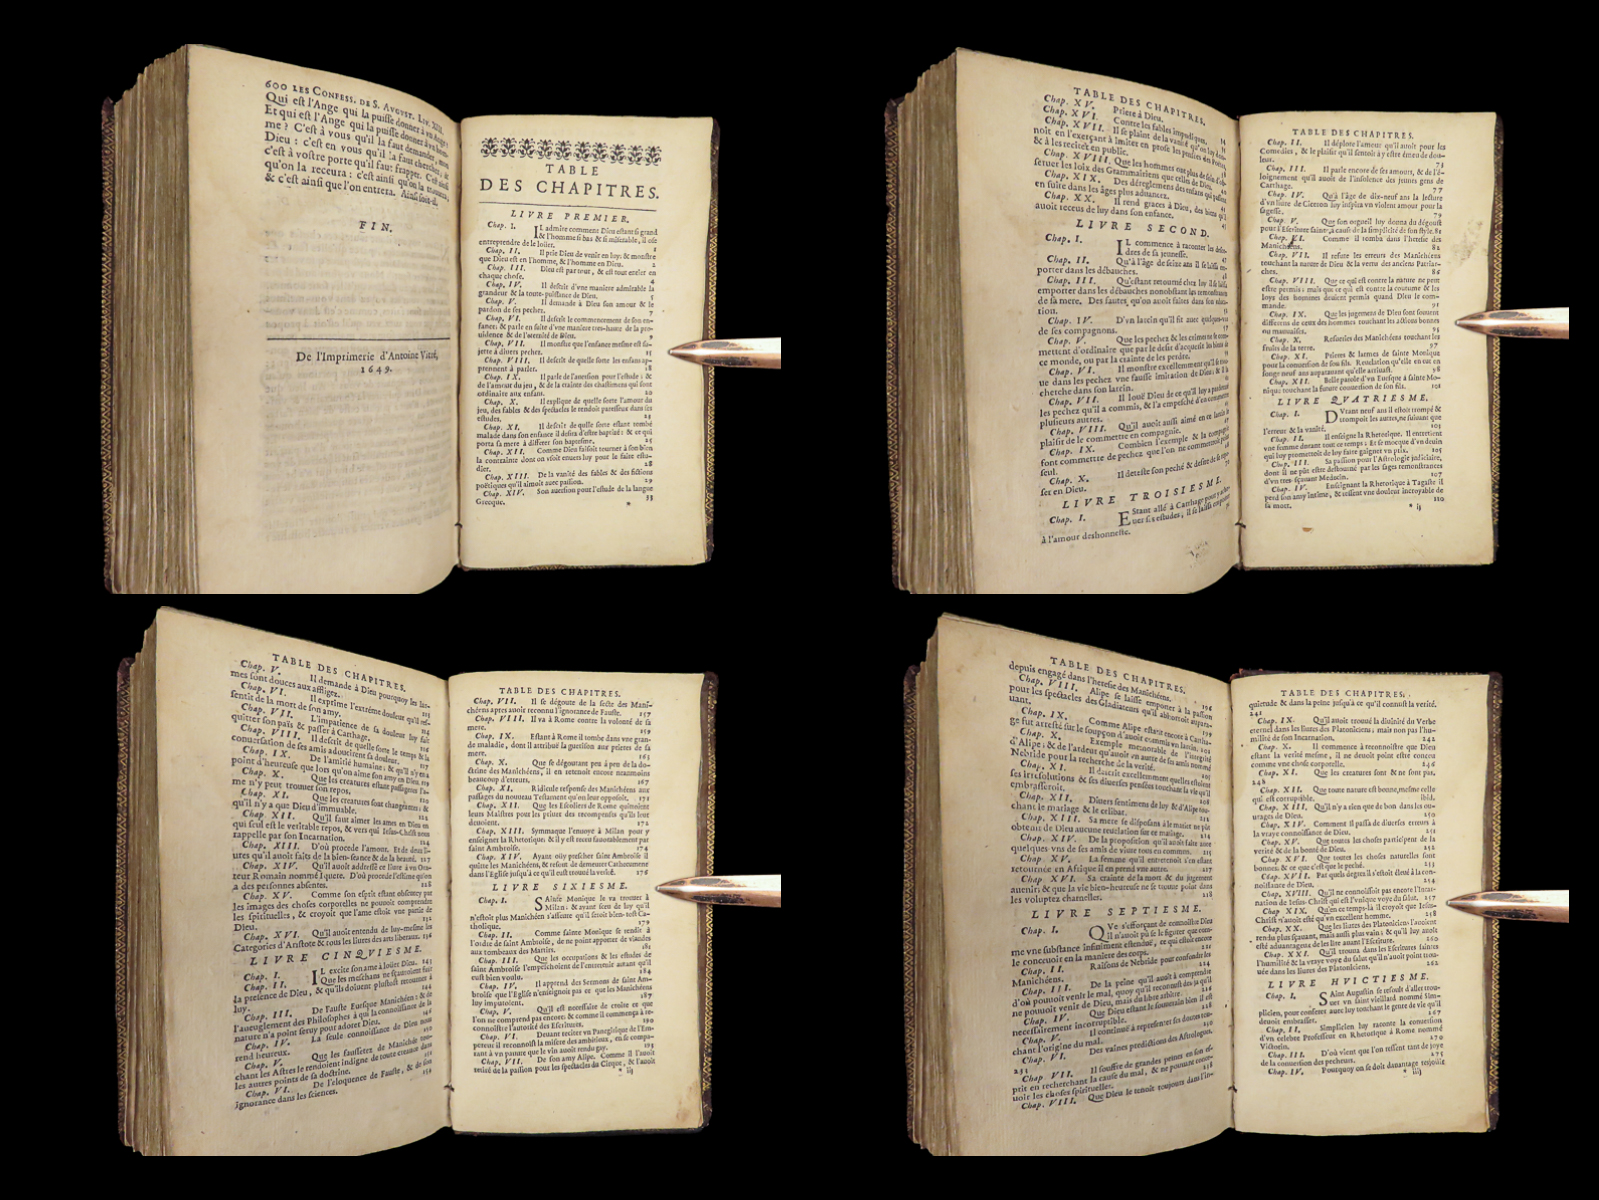 600 LES CONFESS. DE S. AVGVST. LIV. XIII.
Qui est l'Ange qui la puisse donner à vn Ange?
Et qui est l'Ange qui la puisse donner à vn homme
me? C'est à vous qu'il la faut demander, mon
Dieu: c'est en vous qu'il la faut chercher; &
c'est à vostre porte qu'il faut frapper. C'est ainsi
qu'on la receura: c'est ainsi qu'on la trouuera,
& c'est ainsi que l'on entrera. Ainsi soit-il.
FIN.
De l'Imprimerie d'Antoine Vitré,
1649.
TABLE
DES CHAPITRES.
LIVRE PREMIER.
Chap. I. IL admire comment Dieu estant si grand
& l'homme si bas & si miserable, il ose
entreprendre de le loüer.
Chap. II. Il prie Dieu de venir en luy: & monstre
que Dieu est en l'homme, & l'homme en Dieu. 2
Chap. III. Dieu est par tout, & est tout entier en
chaque chose. 4
Chap. IV. Il descrit d'vne maniere admirable la
grandeur & la toute-puissance de Dieu. 5
Chap. V. Il demande à Dieu son amour & le
pardon de ses pechez. 7
Chap. VI. Il descrit le commencement de son en-
fance: & parle en suite d'vne maniere tres-haute de la pro-
uidence & de l'eternité de Dieu. 9
Chap. VII. Il monstre que l'enfance mesme est su-
jette à diuers pechez. 15
Chap. VIII. Il descrit de quelle sorte les enfans ap-
prennent à parler. 18
Chap. IX. Il parle de l'auersion pour l'estude: &
de l'amour du jeu, & de la crainte des chastimens qui sont
ordinaire aux enfans. 20
Chap. X. Il explique de quelle sorte l'amour du
jeu, des fables & des spectacles le rendoit paresseux dans ses
estudes.
Chap. XI. Il descrit de quelle sorte estant tombé
malade dans son enfance il desira d'estre baptisé: & ce qui
porta sa mere à differer son baptesme. 25
Chap. XII. Comme Dieu faisoit tourner à son bien
la contrainte dont on vsoit enuers luy pour le faire estu-
dier. 28
Chap. XIII. De la vanité des fables & des fictions
poëtiques qu'il aimoit auec passion. 29
Chap. XIV. Son auersion pour l'estude de la langue
Grecque. 33
*
TABLE DES CHAPITRES.
Chap. XV. Priere à Dieu.
Chap. XVI. Contre les fables impudiques.
Chap. XVII. Il se plaint de la vanité qu'on
noit en l'exerçant à imiter en prose les poësies
& à les reciter en public.
Chap. XVIII. Que les hommes ont plus de soin d'ob-
seruer les loix des Grammairiens que celles de Dieu.
Chap. XIX. Des déreglemens des enfans qui passent
en suite dans les âges plus aduancez.
Chap. XX. Il rend graces à Dieu, des biens qu'il
auoit receus de luy dans son enfance.
LIVRE SECOND.
Chap. I. IL commence à raconter les desor-
dres de sa jeunesse.
Chap. II. Qu'à l'âge de seize ans il se laissa em-
porter dans les débauches.
Chap. III. Qu'estant retourné chez luy il se laissa
emporter dans les débauches nonobstant les remonstrances
de sa mere. Des fautes qu'on auoit faites dans son educa-
tion.
Chap. IV. D'vn larcin qu'il fit auec quelques-vns
de ses compagnons.
Chap. V. Que les pechez & les crimes ne se com-
mettent d'ordinaire que par le desir d'acquerir les biens de
ce monde, ou par la crainte de les perdre.
Chap. VI. Il monstre excellemment qu'il se trou-
ue dans les pechez vne fausse imitation de Dieu: & il la
cherche dans son larcin.
Chap. VII. Il louë Dieu de ce qu'il luy a pardonné
les pechez qu'il a commis, & l'a empesché d'en commettre
plusieurs autres.
Chap. VIII. Qu'il auoit aussi aimé en ce larcin le
plaisir de le commettre en compagnie.
Chap. IX. Combien l'exemple & la compagnie
font commettre de pechez que l'on ne commettroit pas
seul.
Chap. X. Il deteste son peché & desire de se repo-
ser en Dieu.
LIVRE TROISIESME.
Chap. I. EStant allé à Carthage pour y ache-
uer ses estudes, il se laissa emporter
à l'amour deshonneste.
TABLE DES CHAPITRES.
Chap. II. Il déplore l'amour qu'il auoit pour les
Comedies, & le plaisir qu'il sentoit à y estre émeu de dou-
leur. 73
Chap. III. Il parle encore de ses amours, & de l'é-
loignement qu'il auoit de l'insolence des jeunes gens de
Carthage. 77
Chap. IV. Qu'à l'âge de dix-neuf ans la lecture
d'vn liure de Ciceron luy inspira vn violent amour pour la
sagesse. 79
Chap. V. Que son orgueil luy donna du dégoust
pour l'Escriture sainte, à cause de la simplicité de son style. 81
Chap. VI. Comme il tomba dans l'heresie des
Manichéens. 82
Chap. VII. Il refute les erreurs des Manichéens
touchant la nature de Dieu & la vertu des anciens Patriar-
ches. 86
Chap. VIII. Que ce qui est contre la nature ne peut
estre permis: mais que ce qui est contre la coustume & les
loys des hommes deuient permis quand Dieu le com-
mande. 91
Chap. IX. Que les jugemens de Dieu sont souuent
differens de ceux des hommes touchant les actions bonnes
ou mauuaises. 95
Chap. X. Resueries des Manichéens touchant les
fruits de la terre. 97
Chap. XI. Prieres & larmes de sainte Monique
pour la conuersion de son fils. Reuelation qu'elle en eut en
songe neuf ans auparauant qu'elle arriuast. 98
Chap. XII. Belle parole d'vn Euesque à sainte Mo-
nique touchant la future conuersion de son fils. 101
LIVRE QVATRIESME.
Chap. I. DVrant neuf ans il estoit trompé &
trompoit les autres, ne suiuant que
l'erreur & la vanité. 103
Chap. II. Il enseigne la Rhetorique. Il entretient
vne femme durant tout ce temps: Et se mocque d'vn deuin
qui luy promettoit de luy faire gaigner vn prix. 105
Chap. III. Sa passion pour l'Astrologie judiciaire,
dont il ne pût estre destourné par les sages remonstrances
d'vn tres-sçauant Medecin. 107
Chap. IV. Enseignant la Rhetorique à Tagaste il
perd son amy intime, & ressent vne douleur incroyable de
sa mort. 110
* ij
TABLE DES CHAPITRES.
Chap. V. Il demande à Dieu pourquoy les lar-
mes sont douces aux affligez.
Chap. VI. Il exprime l'extréme douleur qu'il res-
sentit de la mort de son amy.
Chap. VII. L'impatience de sa douleur luy fait
quitter son païs & passer à Carthage.
Chap. VIII. Il descrit de quelle sorte le temps & la
conuersation de ses amis adoucirent sa douleur.
Chap. IX. De l'amitié humaine: & qu'il n'y a
point d'heureuse que lors qu'on aime son amy en Dieu.
Chap. X. Que les creatures estant passageres l'a-
me n'y peut trouuer son repos.
Chap. XI. Que les creatures sont changeantes: &
qu'il n'y a que Dieu d'immuable.
Chap. XII. Qu'il faut aimer les ames en Dieu
qui seul est le veritable repos, & vers qui Iesus-Christ nous
rappelle par son Incarnation.
Chap. XIII. D'où procede l'amour. Et de deux li-
ures qu'il auoit faits de la bien-seance & de la beauté. 127
Chap. XIV. Qu'il auoit addressé ce liure à vn Ora-
teur Romain nommé Iquere. D'où procede l'estime qu'on
a des personnes absentes. 128
Chap. XV. Comme son esprit estant obscurcy par
les images des choses corporelles ne pouuoit comprendre
les spirituelles, & croyoit que l'ame estoit vne partie de
Dieu. 132
Chap. XVI. Qu'il auoit entendu de luy-mesme les
Categories d'Aristote & tous les liures des arts liberaux. 136
LIVRE CINQVIESME.
Chap. I. IL excite son ame à loüer Dieu. 143
Chap. II. Que les meschans ne sçauroient fuir
la presence de Dieu, & qu'ils doiuent plustost retourner à
luy. 144
Chap. III. De Fauste Euesque Manichéen: & de
l'aueuglement des Philosophes à qui la connoissance de la
nature n'a point seruy pour adorer Dieu. 146
Chap. IV. La seule connoissance de Dieu nous
rend heureux.
Chap. V. Que les faussetez de Maniché tou-
chant les Astres le rendoient indigne de toute creance dans
les autres points de sa doctrine.
Chap. VI. De l'eloquence de Fauste, & de son
ignorance dans les sciences. 154
TABLE DES CHAPITRES.
Chap. VII. Il se dégoute de la secte des Mani-
chéens apres auoir reconnu l'ignorance de Fauste. 157
Chap. VIII. Il va à Rome contre la volonté de sa
mere. 159
Chap. IX. Estant à Rome il tombe dans vne gran-
de maladie, dont il attribuë la guerison aux prieres de sa
mere. 163
Chap. X. Que se dégoutant peu à peu de la do-
ctrine des Manichéens, il en retenoit encore neanmoins
beaucoup d'erreurs. 167
Chap. XI. Ridicule response des Manichéens aux
passages du nouueau Testament qu'on leur opposoit. 171
Chap. XII. Que les Escoliers de Rome quittoient
leurs Maistres pour les priuer des recompenses qu'ils leur
deuoient. 172
Chap. XIII. Symmaque l'enuoye à Milan pour y
enseigner la Rhetorique: & il y est receu fauorablement par
saint Ambroise. 174
Chap. XIV. Ayant oüy prescher saint Ambroise il
quitte les Manichéens, & resout de demeurer Catechumene
dans l'Eglise jusqu'à ce qu'il eust trouué la verité. 176
LIVRE SIXIESME.
Chap. I. SAinte Monique le va trouuer à
Milan: & ayant sceu de luy qu'il
n'estoit plus Manichéen s'asseure qu'il seroit bien-tost Ca-
tholique. 179
Chap. II. Comme sainte Monique se rendit à
l'ordre de saint Ambroise, de ne point apporter de viandes
aux tombeaux des Martirs. 181
Chap. III. Que les occupations & les estudes de
saint Ambroise l'empeschoient de l'entretenir autant qu'il
eust bien voulu. 184
Chap. IV. Il apprend des Sermons de saint Am-
broise que l'Eglise n'enseignoit pas ce que les Manichéens
luy imputoient. 187
Chap. V. Qu'il est necessaire de croire ce que
l'on ne comprend pas encore: & comme il commença à re-
connoistre l'autorité des Escritures. 190
Chap. VI. Deuant reciter vn Panegirique de l'Em-
pereur il reconnoist la misere des ambitieux, en se compa-
rant à vn pauure que le vin auoit rendu gay. 193
Chap. VII. De son amy Alipe. Comme il l'auoit
retiré de la passion pour les spectacles du Cirque, & l'auoit
* iij
TABLE DES CHAPITRES.
depuis engagé dans l'heresie des Manichéens. 196
Chap. VIII. Alipe se laisse emporter à la passion
pour les spectacles des Gladiateurs qu'il abhorroit aupara-
uant. 199
Chap. IX. Comme Alipe estant encore à Cartha-
ge fut arresté sur le soupçon d'auoir commis vn larcin. 201
Chap. X. Exemple memorable de l'integrité
d'Alipe: & de l'ardeur qu'auoit vn autre de ses amis nommé
Nebride pour la recherche de la verité.
Chap. XI. Il descrit excellemment quelles estoient
ses irresolutions & ses diuerses pensées touchant la vie qu'il
embrasseroit.
Chap. XII. Diuers sentimens de luy & d'Alipe tou-
chant le mariage & le celibat.
Chap. XIII. Sa mere se disposant à le marier ne pût
obtenir de Dieu aucune reuelation sur ce mariage. 214
Chap. XIV. De la proposition qu'il auoit faite auec
quelques vns de ses amis de viure tous en commun. 215
Chap. XV. La femme qu'il entretenoit s'en estant
retournée en Afrique il en prend vne autre. 217
Chap. XVI. Sa crainte de la mort & du jugement
auenir: & que la vie bien-heureuse ne se trouue point dans
les voluptez charnelles. 218
LIVRE SEPTIESME.
Chap. I. QVe s'efforçant de connoistre Dieu
il n'auoit pû se le figurer que com-
me vne substance infiniment estenduë, ce qui estoit encore
le conceuoir en la maniere des corps. 221
Chap. II. Raisons de Nebride pour confondre les
Manichéens.
Chap. III. De la peine qu'il auoit à comprendre
d'où pouuoit venir le mal, quoy qu'il reconnust des-ja qu'il
ne pouuoit venir de Dieu, mais du libre arbitre.
Chap. IV. Que Dieu estant le souuerain bien il est
necessairement incorruptible.
Chap. V. Il continuë à representer ses doutes tou-
chant l'origine du mal. 230
Chap. VI. Des vaines predictions des Astrologues.
234
Chap. VII. Il souffre de grandes peines en son es-
prit en recherchant la cause du mal, & ne pouuoit conce-
uoir les choses spirituelles. 238
Chap. VIII. Que Dieu le tenoit toujours dans l'in-
TABLE DES CHAPITRES.
quietude & dans la peine jusqu'à ce qu'il connust la verité.
241
Chap. IX. Qu'il auoit trouué la diuinité du Verbe
eternel dans les liures des Platoniciens; mais non pas l'hu-
milité de son Incarnation. 242
Chap. X. Il commence à reconnoistre que Dieu
estant la verité mesme, il ne deuoit point estre conceu
comme vne chose corporelle. 246
Chap. XI. Que les creatures sont & ne sont pas.
248
Chap. XII. Que toute nature est bonne, mesme celle
qui est corruptible. ibid.
Chap. XIII. Qu'il n'y a rien que de bon dans les ou-
urages de Dieu. 250
Chap. XIV. Comment il passa de diuerses erreurs à
la vraye connoissance de Dieu. 251
Chap. XV. Que toutes choses participent de la
verité & de la bonté de Dieu. 252
Chap. XVI. Que toutes les choses naturelles sont
bonnes: & ce que c'est que le peché. 253
Chap. XVII. Par quels degrez il s'estoit éleué à la con-
noissance de Dieu. 254
Chap. XVIII. Qu'il ne connoissoit pas encore l'Incar-
nation de Iesus-Christ qui est l'vnique voye du salut. 257
Chap. XIX. Qu'en ce temps-là il croyoit que Iesus-
Christ n'auoit esté qu'vn excellent homme. 258
Chap. XX. Que les liures des Platoniciens l'auoient
rendu plus sçauant, mais aussi plus vain: & qu'il luy auoit
esté aduantageux de les lire auant l'Escriture. 260
Chap. XXI. Qu'il trouua dans les Escritures saintes
l'humilité & la vraye voye du salut qu'il n'auoit point trou-
uée dans les liures des Platoniciens. 262
LIVRE HVICTIESME.
Chap. I. SAint Augustin se resout d'aller trou-
uer vn saint vieillard nommé Sim-
plicien, pour conferer auec luy touchant le genre de vie qu'il
deuoit embrasser. 267
Chap. II. Simplicien luy raconte la conuersion
d'vn celebre Professeur en Rhetorique à Rome nommé
Victorin. 270
Chap. III. D'où vient que l'on ressent tant de joye
de la conuersion des pecheurs. 275
Chap. IV. Pourquoy on se doit dauantage resjoüir
* iiij